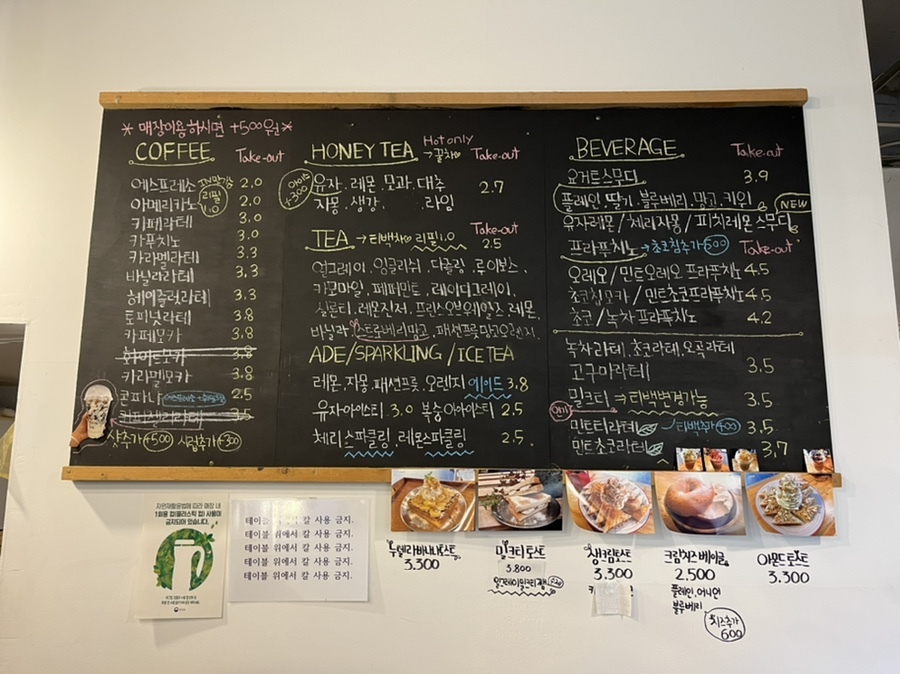 * 매장이용하시면 +500원 *
COFFEE Take-out
에스프레소 2.0
아메리카노 2.0
리필 1.0
카페라테 3.0
카푸치노 3.0
카라멜라테 3.3
바닐라라테 3.3
헤이즐럿라테 3.3
토피넛라테 3.8
카페모카 3.8
화이트모카 3.8
카라멜모카 3.8
콘파냐 2.5
3.5
샷추가 +500 시럽추가 +300
HONEY TEA Hot only → 꿀차 Take-out
아이스 +300
유자. 레몬. 모과. 대추
자몽. 생강. .라임
2.7
TEA → 티백차 리필 1.0 Take-out
2.5
얼그레이. 잉글리쉬. 다즐링. 루이보스.
카모마일. 페퍼민트. 레이디그레이.
실론티. 레몬진저. 프린스오브웨일즈. 레몬.
바닐라. 스트로베리망고. 패션프룻망고오렌지.
ADE/SPARKLING/ICE TEA
레몬. 자몽. 패션프룻. 오렌지 에이드 3.8
유자아이스티 3.0 복숭아아이스티 2.5
체리스파클링. 레몬스파클링 2.5.
BEVERAGE Take-out
요거트스무디 3.9
플레인. 딸기. 블루베리. 망고. 키위 NEW
유자레몬 / 체리자몽 / 피치레몬 스무디
프라푸치노 → 초코칩추가 500 Take-out
오레오 / 민트오레오 프라푸치노 4.5
초코칩모카 / 민트초코프라푸치노 4.5
초코 / 녹차 프라푸치노 4.2
녹차라테. 초코라테. 오곡라테
고구마라테 3.5
밀크티 → 티백변경가능 3.5
민트티라테 티백추가 +400 3.5
민트초코라테 3.7
자원재활용법에 따라 매장 내
1회용 컵(플라스틱 컵) 사용이
금지되어 있습니다.
테이블 위에서 칼 사용 금지.
테이블 위에서 칼 사용 금지.
테이블 위에서 칼 사용 금지.
테이블 위에서 칼 사용 금지.
테이블 위에서 칼 사용 금지.
누텔라바나나토스트
3.300
밀크티토스트
3.800
얼그레이밀크티잼
생크림토스트
3.300
크림치즈베이글
2.500
플레인, 어니언
블루베리
치즈추가
600
아몬드토스트
3.300